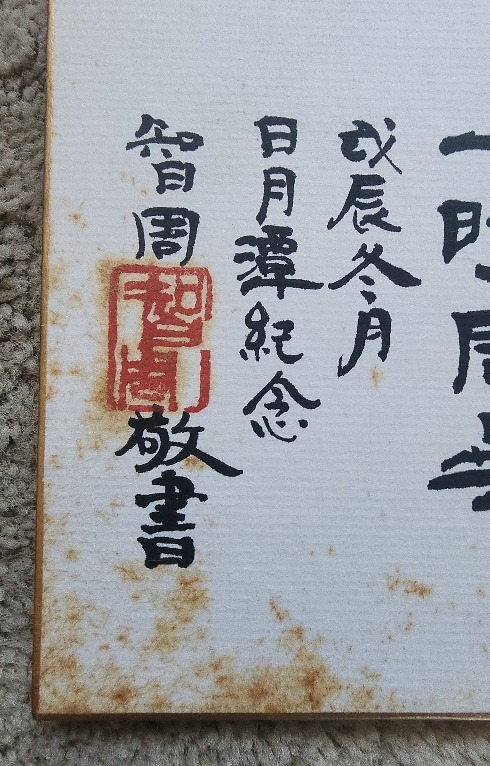 戊辰冬月
日月潭紀念
智周
智周
敬書